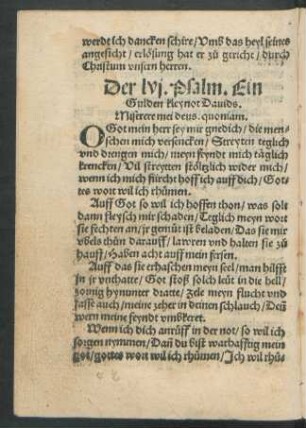 werdt ich dancken schire/ Vmb das heyl seines
angesicht/ erlösung hat er zů gericht/ durch
Christum vnsern herren.
Der lvj. Psalm. Ein
Gulden kleynot Dauids.
Miserere mei deus. quoniam.
O Got mein herr sey mir gnedich/ die men-
schen mich versencken/ Streyten teglich
vnd drengen mich/ meyn feyndt mich täglich
krencken/ Vil streyten stöltzlich wider mich/
wenn ich mich fürcht hoff ich auff dich/ Got-
tes wort wil ich rhümen.
Auff Got so wil ich hoffen thon/ was solt
dann fleysch mir schaden/ Teglich meyn wort
sie fechten an/ jr gemüt ist beladen/ Das sie mir
vbels thün darauff/ lawren vnd halten sie zů
hauff/ Haben acht auff mein fersen.
Auff das sie erhaschen meyn seel/ man hilfft
in jr vnthatte/ Got stoß solch leüt in die hell/
zornig hynunter dratte/ Zele meyn flucht vnd
fasst auch/ meine zeher in deinen schlauch/ Deñ
wern meine feyndt vmbkeret.
Wenn ich dich anrüff in der not/ so wil ich
sorgen nymmen/ Dañ du bist warhafftig mein
got/ gottes wort wil ich rhümen/ Ich wil rhü-